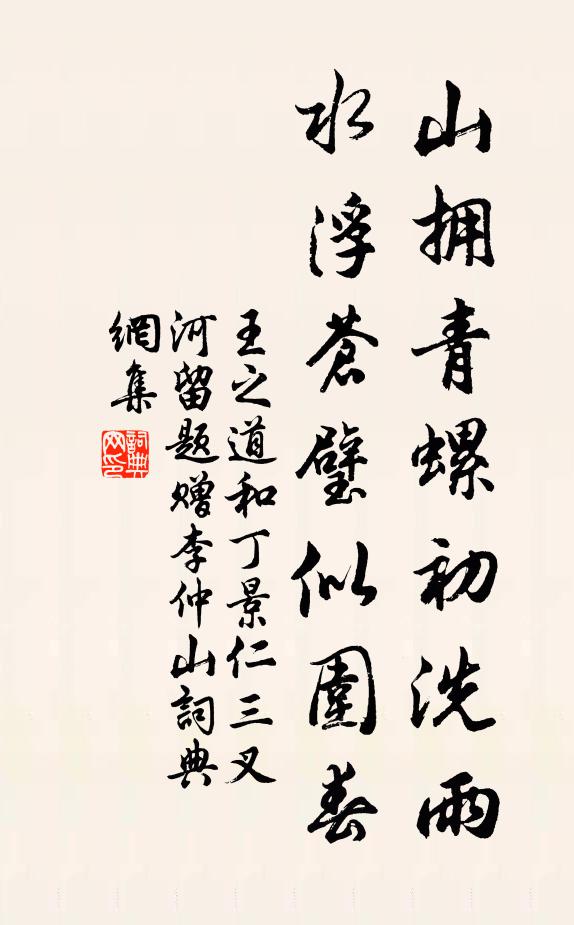 山拥青螺初洗雨
水浮苍璧似围春
王之道和丁景仁三叉
河留题赠李仲山词典
網集
詞典
网印